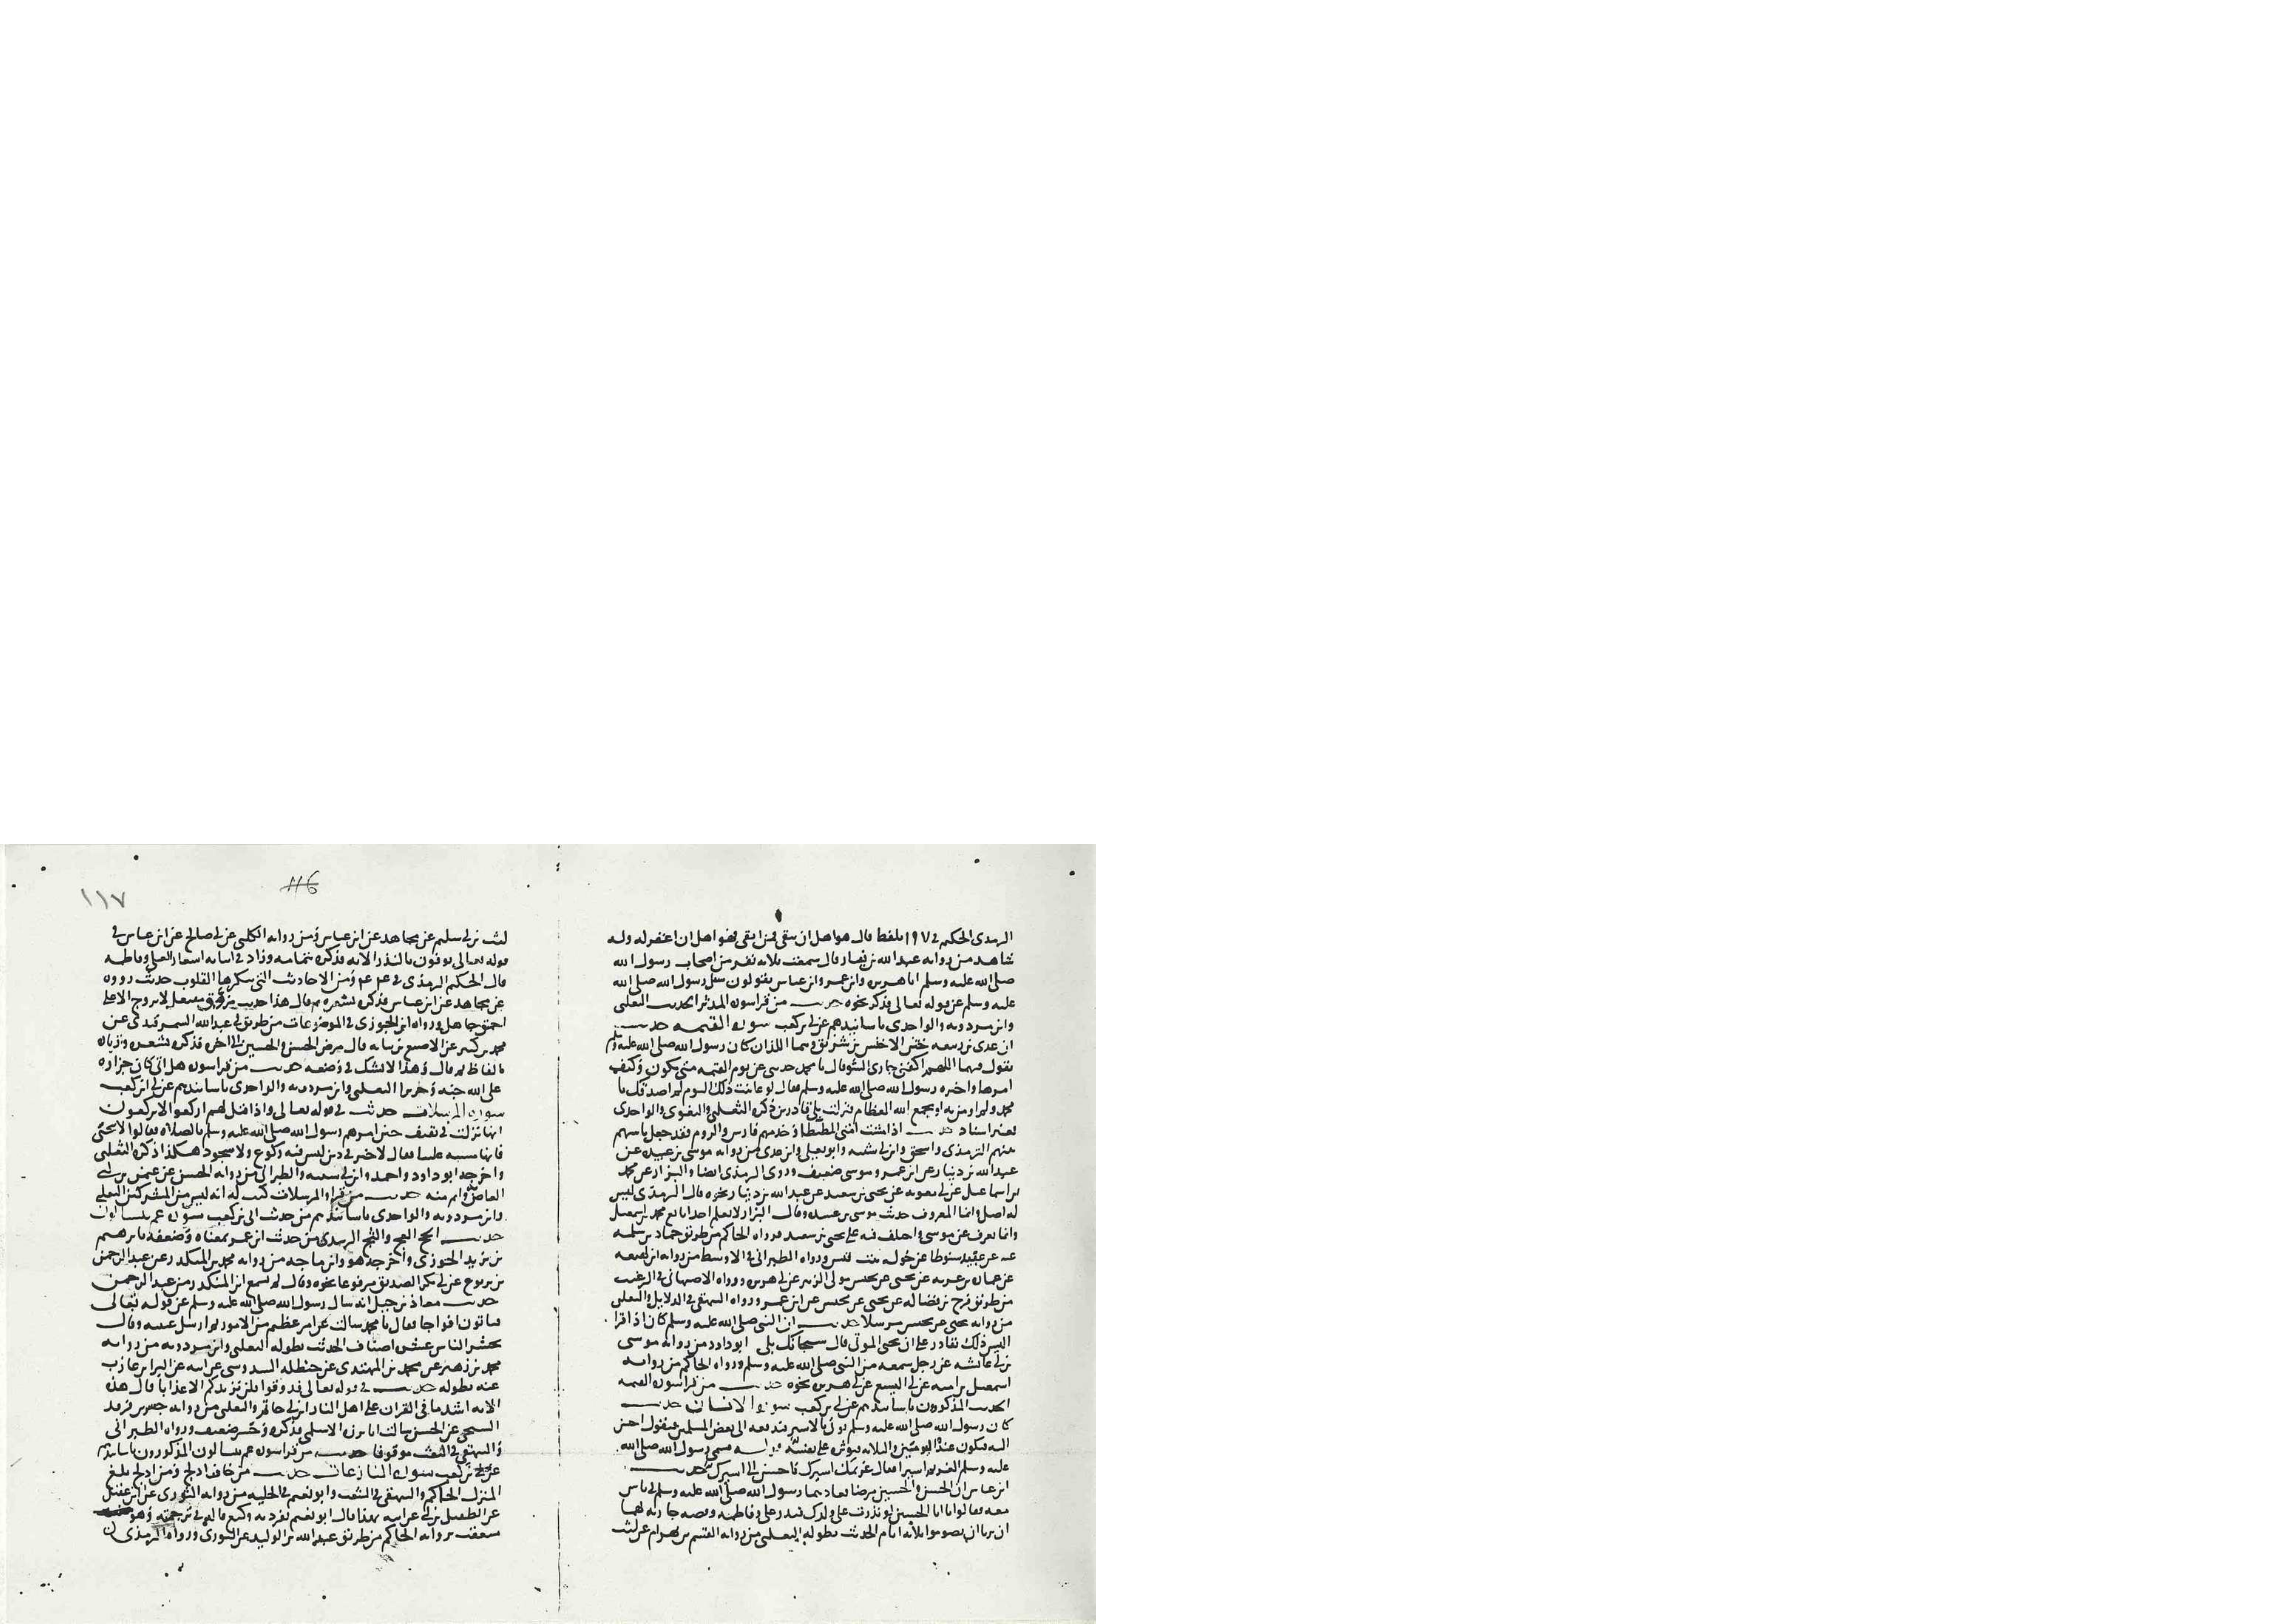 الترمذى الحكيم في ١٩٧ بلفظ قال هو اهل ان يتقى فمن اتقى فهو اهل ان اغفر له وله
شاهد من رواية عبد الله بن دينار قال سمعت ثلاثة نفر من اصحاب رسول الله
صلى الله عليه وسلم ابا هريرة وابن عمر وابن عباس يقولون سئل رسول الله صلى الله
عليه وسلم عن قوله تعالى فذكر نحوه حديث من قرا سورة المدثر الحديث الثعلبى
وابن مردويه والواحدى باسانيدهم عن ابي بن كعب سورة القيمة حديث
ان عدى بن ربيعة ختن الاخنس بن شريق وهما اللذان كان رسول الله صلى الله عليه وسلم
يقول فيهما اللهم اكفنى جارى السوء قال يا محمد حدثنى عن يوم القيمة متى يكون وكيف
امرها واخبره رسول الله صلى الله عليه وسلم فقال لو عاينت ذلك اليوم لم اصدقك يا
محمد ولم اومن به او يجمع الله العظام فنزلت بلى قادرين ذكره الثعلبى والبغوى والواحدى
بغير اسناد حديث اذا مشت امتى المطيطا وخدمتهم فارس والروم فقد جعل باسهم
بينهم الترمذى واسحق وابن ابي شيبة وابو يعلى وابن عدى من رواية موسى بن عبيدة عن
عبد الله بن دينار عن ابن عمر وموسى ضعيف وروى الترمذى ايضا والبزار عن محمد
بن اسماعيل عن ابي معوية عن يحيى بن سعيد عن عبد الله بن دينار نحوه قال الترمذى ليس
له اصل وانما المعروف حديث موسى بن عبيدة وقال البزار لا نعلم احدا تابع محمد بن اسمعيل
وانما يعرف عن موسى واختلف فيه على يحيى بن سعيد فرواه الحاكم من طريق حماد بن سلمة
عنه عن عبيد سنوطا عن خولة بنت قيس ورواه الطبرانى في الاوسط من رواية ابن لهيعة
عن عمارة بن غزية عن يحيى عن يحنس مولى الزبير عن ابي هريرة ورواه الاصبهانى في الترغيب
من طريق فرج بن فضالة عن يحيى عن يحنس عن ابن عمر ورواه البيهقى في الدلايل والثعلبى
من رواية يحيى عن يحنس مرسلا حديث ان النبى صلى الله عليه وسلم كان اذا قرا
اليس ذلك بقادر على ان يحيى الموتى قال سبحانك بلى ابو داود من رواية موسى
بن ابي عائشة عن رجل سمعه من النبى صلى الله عليه وسلم ورواه الحاكم من رواية
اسمعيل بن امية عن ابي اليسع عن ابي هريرة نحوه حديث من قرا سورة القيمة
الحديث المذكورون باسانيدهم عن ابي بن كعب سورة الانسان حديث
كان رسول الله صلى الله عليه وسلم يوتى بالاسير فيدفعه الى بعض المسلمين فيقول احسن
اليه فيكون عنده اليومين والثلاثة فيوثره على نفسه حديث سمى رسول الله صلى الله
عليه وسلم الغريم اسيرا فقال غريمك اسيرك فاحسن الى اسيرك حديث
ابن عباس ان الحسن والحسين مرضا فعادهما رسول الله صلى الله عليه وسلم في ناس
معه فقالوا يا ابا الحسين لو نذرت على ولدك فنذر على وفاطمة وفضة جارية لهما
ان برءا ان يصوموا ثلاثة ايام الحديث بطوله الثعلبى من رواية القسم بن بهرام عن ليث
١١٧
116
ليث بن ابي سليم عن مجاهد عن ابن عباس ومن رواية الكلبى عن ابي صالح عن ابن عباس في
قوله تعالى يوفون بالنذر الاية فذكره بتمامه وزاد في اثنائه اشعارا لعلى وفاطمة
قال الحكيم الترمذى في ومن الاحاديث التى تنكرها القلوب حديث رووه
عن مجاهد عن ابن عباس فذكره بشعره ثم قال هذا حديث مزوق مفتعل لا يروج الا على
احمق جاهل ورواه ابن الجوزى في الموضوعات من طريق ابي عبد الله السمرقندى عن
محمد بن كثير عن الاصبغ بن نباتة قال مرض الحسن والحسين الى اخره فذكره بشعره وزيادة
الفاظ ثم قال وهذا لا يشك في وضعه حديث من قرا سورة هل اتى كان جزاؤه
على الله جنة وحريرا الثعلبى وابن مردويه والواحدى باسانيدهم عن ابي بن كعب
سورة المرسلات حديث في قوله تعالى واذا قيل لهم اركعوا لا يركعون
انها نزلت في ثقيف حين امرهم رسول الله صلى الله عليه وسلم بالصلاة فقالوا لا نحنى
فانها مسبة علينا فقال لا خير في دين ليس فيه ركوع ولا سجود هكذا ذكره الثعلبى
واخرجه ابو داود واحمد وابن ابي شيبة والطبرانى من رواية الحسن عن عثمن بن ابي
العاص واتم منه حديث من قرا والمرسلات كتب له انه ليس من المشركين الثعلبى
وابن مردويه والواحدى باسانيدهم من حديث ابي بن كعب سورة عم يتساءلون
حديث الحج العج والثج الترمذى من حديث ابن عمر بمعناه وضعفه بابرهيم
بن يزيد الخوزى واخرجه هو وابن ماجه من رواية محمد بن المنكدر عن عبد الرحمن
بن يربوع عن ابي بكر الصديق مرفوعا نحوه وقال لم يسمع ابن المنكدر من عبد الرحمن
حديث معاذ بن جبل انه سال رسول الله صلى الله عليه وسلم عن قوله تعالى
فتاتون افواجا فقال يا محمد سالت عن امر عظيم من الامور ثم ارسل عينيه وقال
يحشر الناس عشرة اصناف الحديث بطوله الثعلبى وابن مردويه من رواية
محمد بن زهير عن محمد بن المهتدى عن حنظلة السدوسى عن ابيه عن البراء بن عازب
عنه بطوله حديث في قوله تعالى فذوقوا فلن نزيدكم الا عذابا قال هذه
الاية اشد ما في القران على اهل النار ابن ابي حاتم والثعلبى من رواية جسر بن فرقد
السبخى عن الحسن سالت ابا برزة الاسلمى فذكره وجسر ضعيف ورواه الطبرانى
والبيهقى في البعث موقوفا حديث من قرا سورة عم يتساءلون المذكورون باسانيدهم
عن ابي بن كعب سورة النازعات حديث من خاف ادلج ومن ادلج بلغ
المنزل الحاكم والبيهقى في الشعب وابو نعيم في الحلية من رواية الثورى عن ابن عقيل
عن الطفيل بن ابي عن ابيه بهذا قال ابو نعيم تفرد به وكيع قاله في ترجمته وهو
متعقب برواية الحاكم من طريق عبد الله بن الوليد عن الثورى ورواه الترمذى